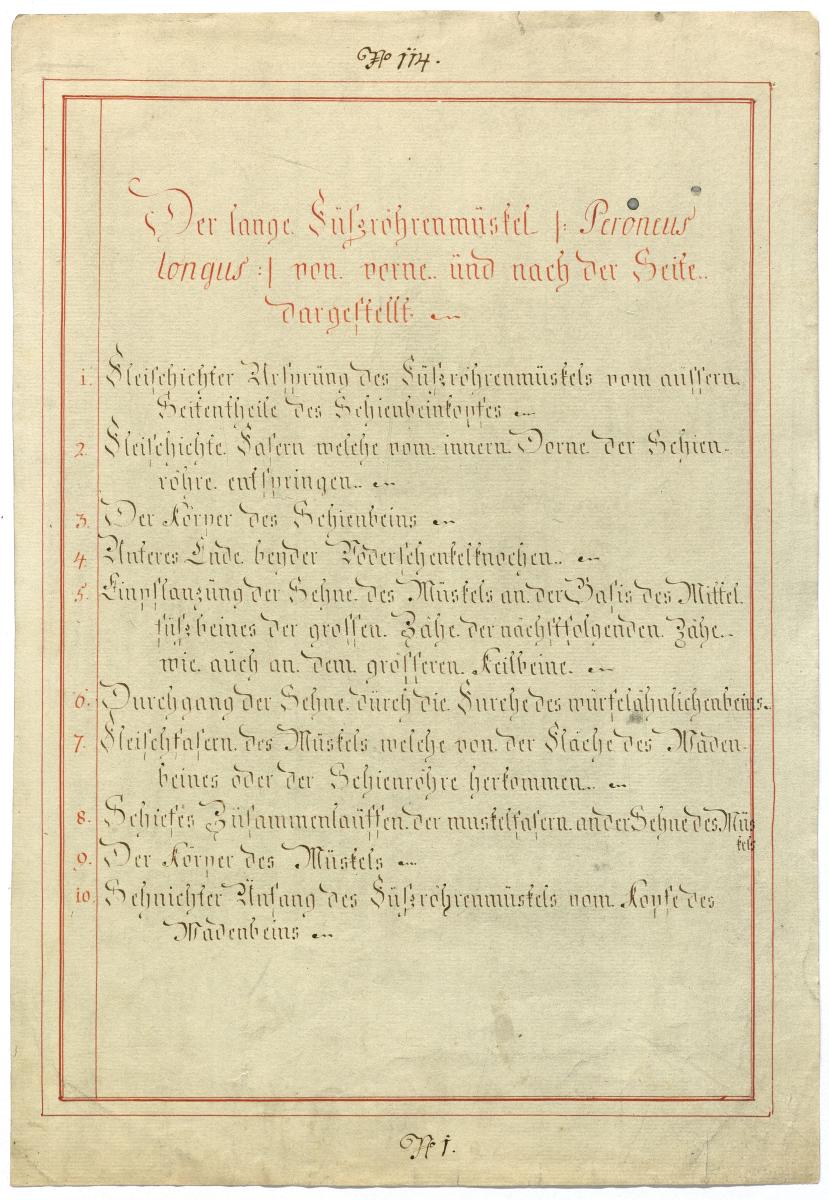 No 114.
Der lange Füßröhrenmüskel |: Peroneus
longus :| von vorne ünd nach der Seite
dargestellt
1. Fleischichter Ursprüng des Füßröhrenmüskels vom aüssern
Seitentheile des Schienbeinkopfes
2. Fleischichte Fasern welche vom innern Dorne der Schien-
röhre entspringen
3. Der Körper des Schienbeins
4. Unteres Ende beyder Voderschenkelknochen
5. Einpflanzüng der Sehne des Müskels an der Basis des Mittel
füßbeines der grossen Zähe der nächstfolgenden Zähe
wie auch an dem grösseren Keilbeine
6. Durchgang der Sehne dürch die Furche des würfelähnlichenbeins
7. Fleischfasern des Müskels welche von der Fläche des Waden-
beines oder der Schienröhre herkommen
8. Schiefes Züsammenlaüffen der muskelfasern an der Sehne des Müs
kels
9. Der Körper des Müskels
10. Sehnichter Anfang des Füßröhrenmüskels vom Kopfe des
Wadenbeins
No 1.